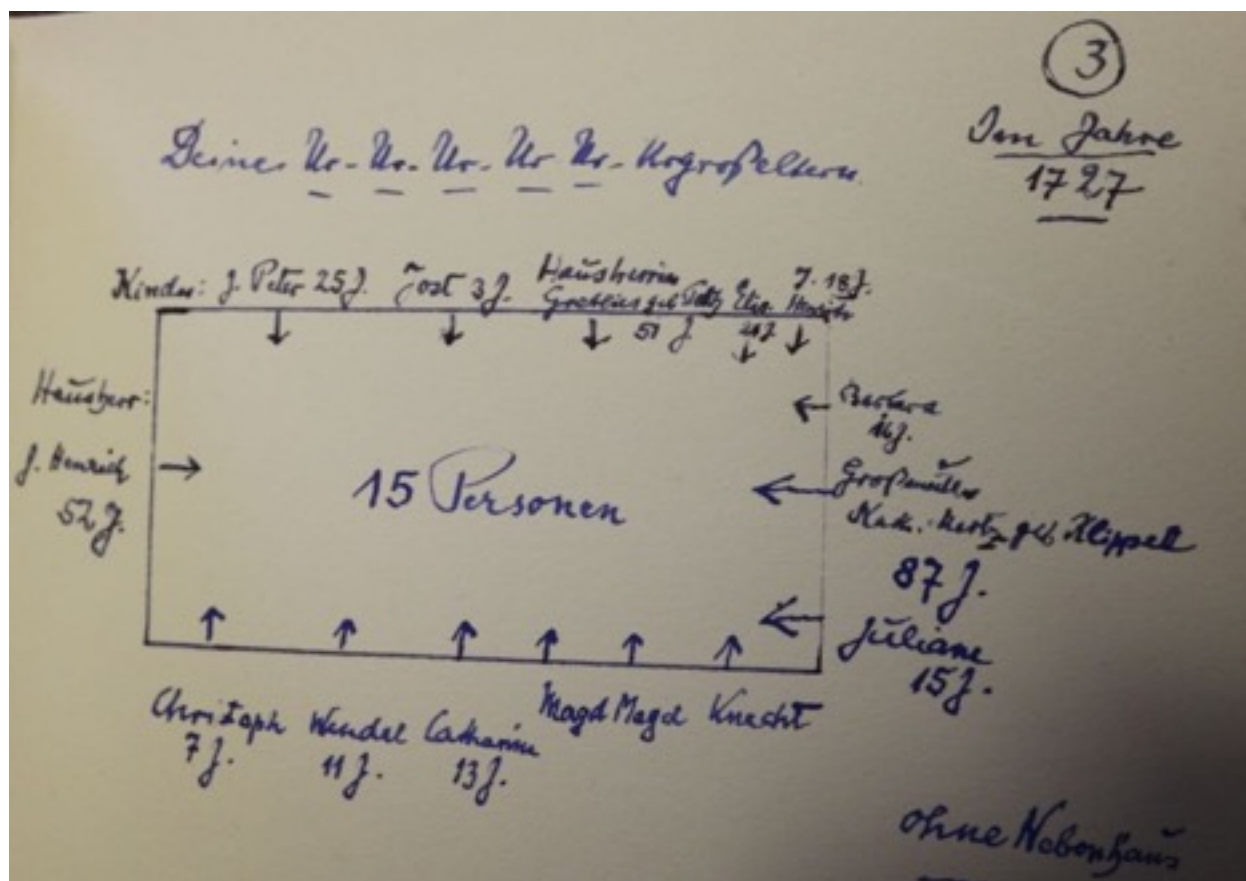 3
Im Jahre
1727
Deine Ur-Ur-Ur-Ur Ur-Urgroßeltern
Kinder: J. Peter 25 J. Jost 3 J. Hausherrin J. 18 J.
geb Henrich
51 J
Hausherr:
J. Henrich
52 J.
15 Personen
Barbara
16 J.
Großmutter
Kath. geb Klippel
87 J.
Juliane
15 J.
Christoph Wendel Catharina Magd Magd Knecht
7 J. 11 J. 13 J.
ohne Nebenhaus